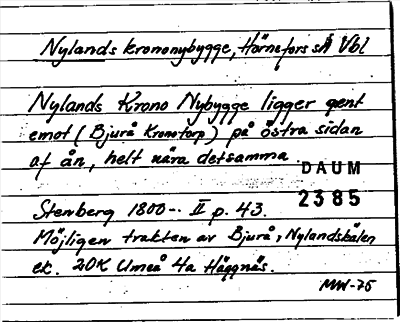 Nylands krononybygge, Hörnefors sn Vbl
Nylands Krono Nybygge ligger gent
emot (Bjurå Kronotorp) på östra sidan
af ån, helt nära detsamma.
DAUM
2385
Stenberg 1800-. II p. 43.
Möjligen trakten av Bjurå, Nylandskälen
ek. 20K Umeå 4a Häggnäs.
MW-75